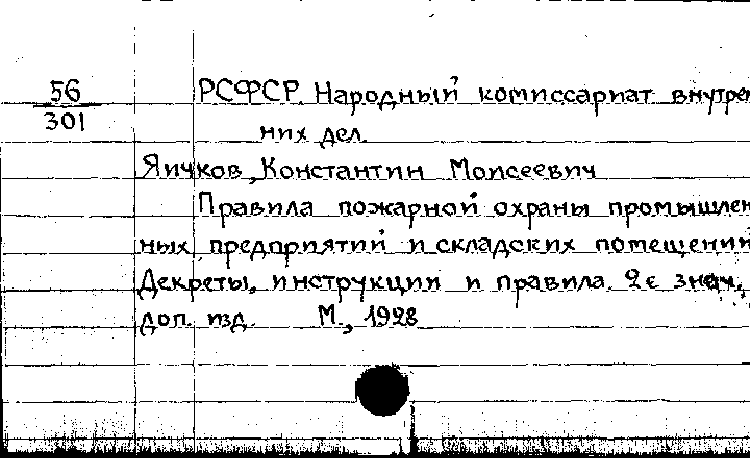 56
301
РСФСР. Народный комиссариат внутрен
них дел.
Яичков, Константин Моисеевич
Правила пожарной охраны промышлен
ных предприятий и складских помещений
Декреты, инструкции и правила. 2е знач.
доп. изд. М., 1928